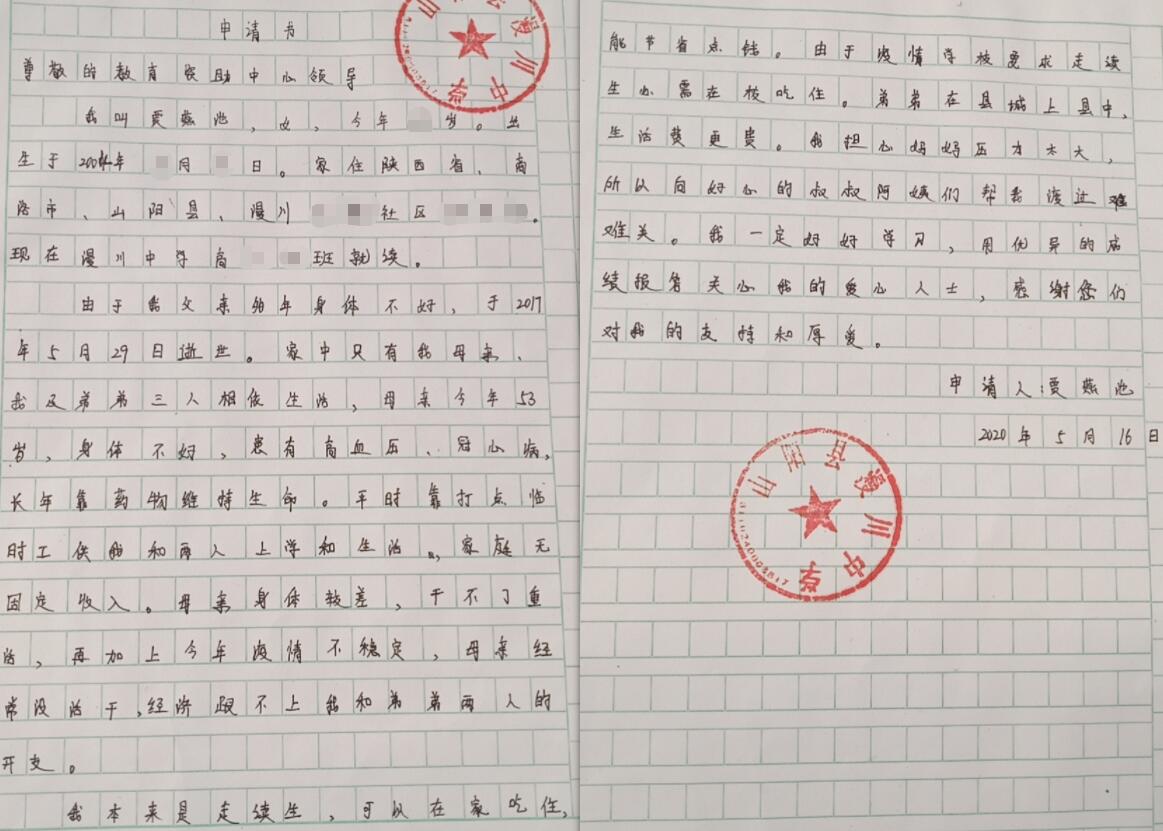 申请书
尊敬的教育资助中心领导
我叫贾燕池，女，今年 岁。出
生于2004年 月 日。家住陕西省、商
洛市、山阳县、漫川 社区 。
现在漫川中学高 班就续。
由于我父亲幼年身体不好，于2017
年5月29日逝世。家中只有我母亲、
我及弟弟三人相依生活，母亲今年53
岁，身体不好，患有高血压、冠心病，
长年靠药物维持生命。平时靠打点临
时工供我和两人上学和生活。，家庭无
固定收入。母亲身体较差，干不了重
活，再加上今年疫情不稳定，母亲经
常没活干，经济跟不上我和弟弟两人的
开支。
我本来是走续生，可以在家吃住，
能节省点钱。由于疫情学校要求走续
生必需在校吃住。弟弟在县城上县中，
生活费更贵。我担心妈妈压力太大，
所以向好心的叔叔阿姨们帮我渡过难
难关。我一定好好学习，用优异的成
绩报答关心我的爱心人士，感谢您们
对我的支持和厚爱。
申请人：贾燕池
2020年5月16日
山阳县漫川中学
山阳县漫川中学